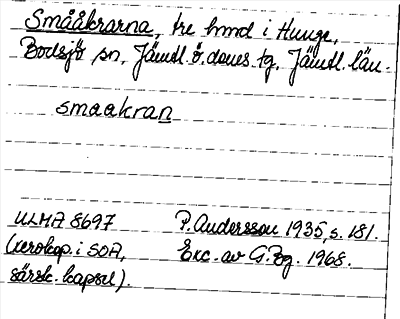 Småååkrarna, tre hmd i Hunge,
Bodsjö sn, Jämtl. ö. doms. tg. Jämtl. län.
smaakran
ULMA 8697 P. Andersson 1935, s. 181.
(xerokop. i SOA, Exc. av G. Bg. 1968.
särsk. kapsel).